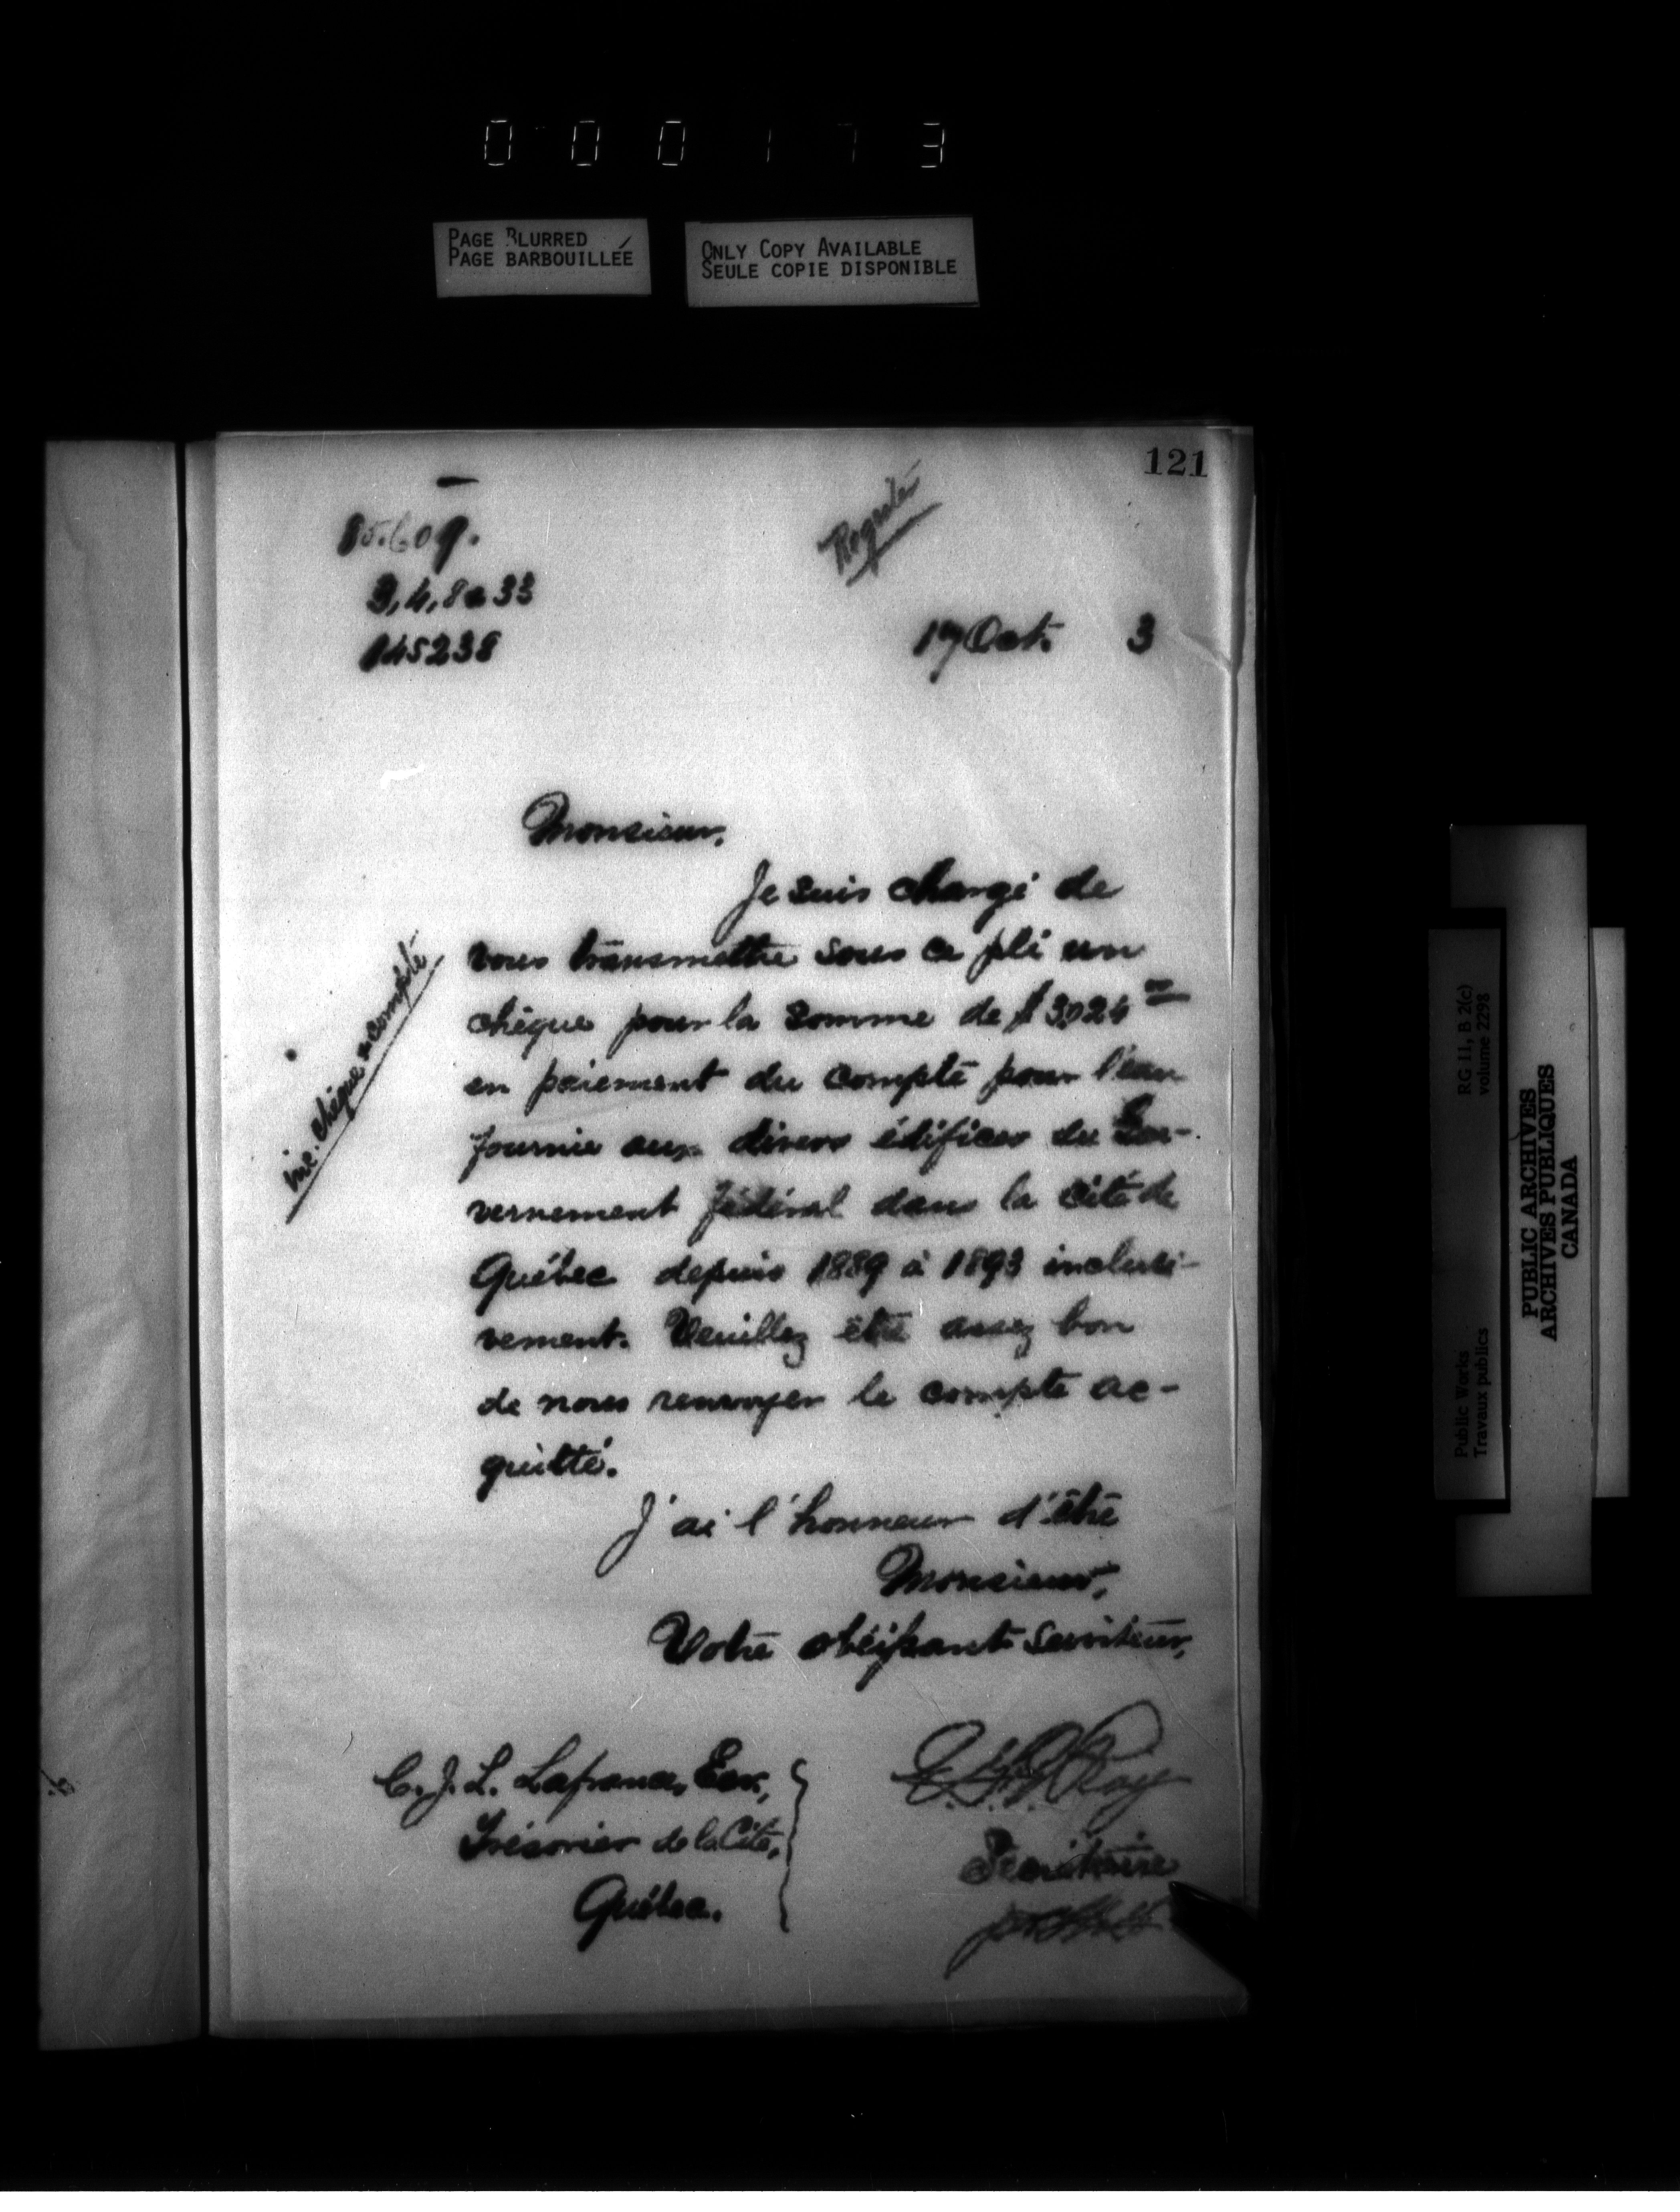 000173
PAGE BLURRED
PAGE BARBOUILLÉE
ONLY COPY AVAILABLE
SEULE COPIE DISPONIBLE
121
85.609.
3,4,8a33
145238
17 Oct. 3
Monsieur,
Je suis chargé de
vous transmettre sous ce pli un
chèque pour la somme de $3024 00
en paiement du compte pour l'eau
fournie aux divers édifices du Gou-
vernement fédéral dans la cité de
Québec depuis 1889 à 1893 inclusi-
vement. Veuillez être assez bon
de nous renvoyer le compte ac-
quitté.
J'ai l'honneur d'être
Monsieur,
Votre obéissant serviteur,
inc. chèque & compte
C. J. L. Lafrance, Ecr.,
Trésorier de la Cité,
Québec.
E.F.E. Roy
Secrétaire
Public Works
Travaux publics
RG 11, B 2(c)
volume 2298
PUBLIC ARCHIVES
ARCHIVES PUBLIQUES
CANADA